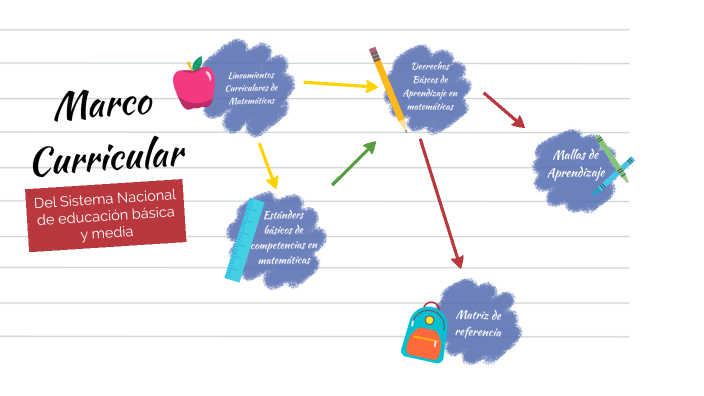 Marco
Curricular
Del Sistema Nacional
de educación básica
y media
Lineamientos
Curriculares de
Matemáticas
Derechos
Báscos de
Aprendizaje en
matemáticas
Estánders
básicos de
competencias en
matemáticas
Mallas de
Aprendizaje
Matriz de
referencia